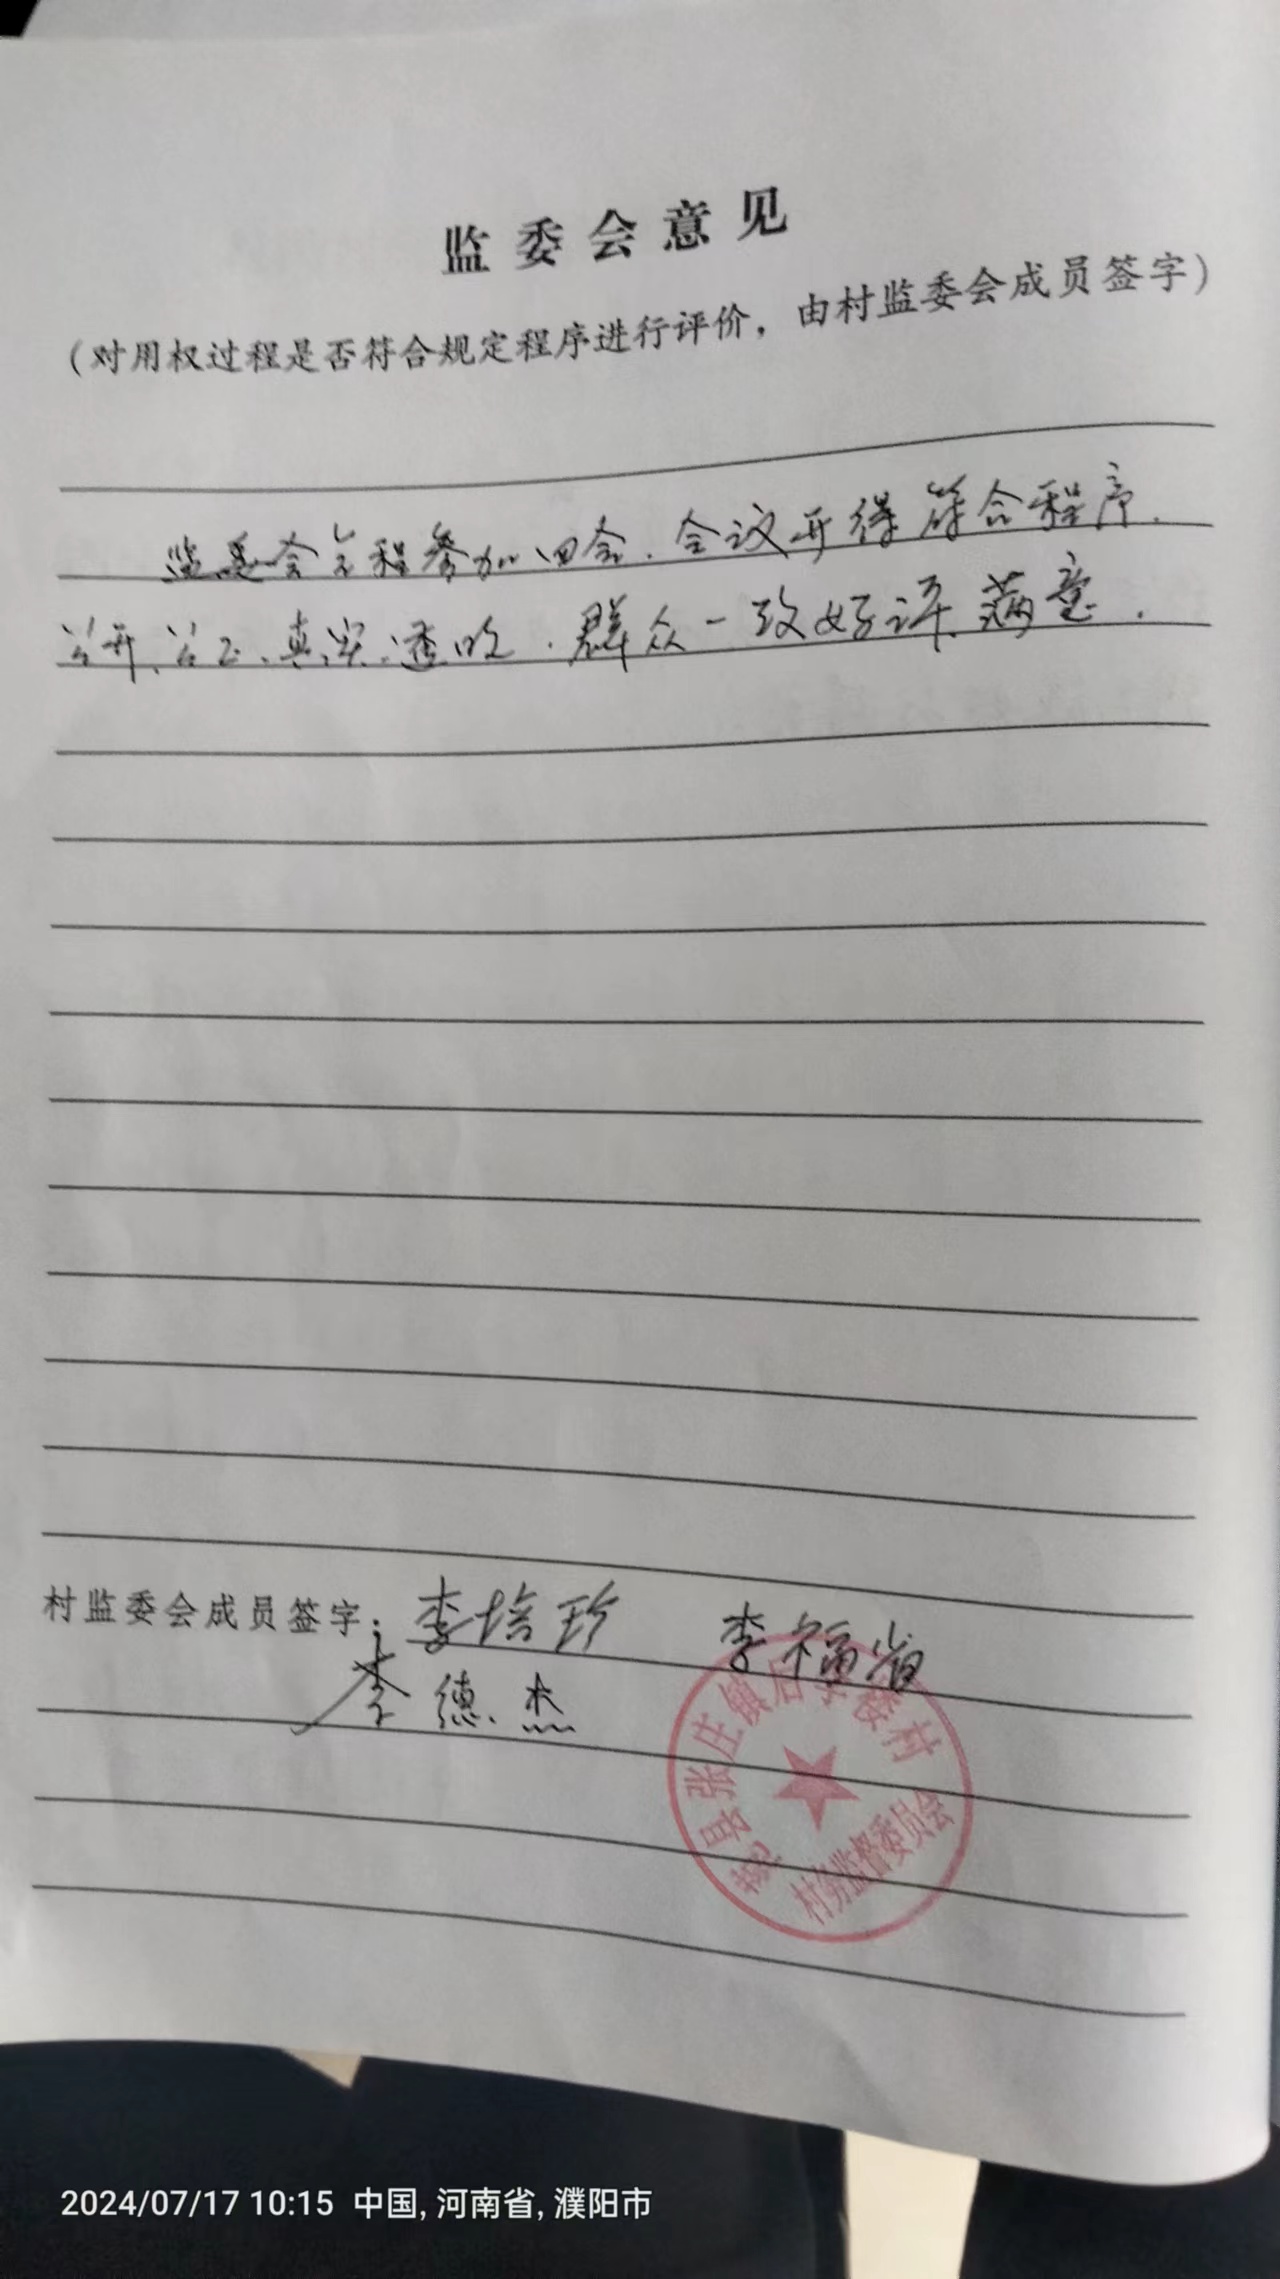 监委会意见
(对用权过程是否符合规定程序进行评价，由村监委会成员签字)
监委会全程参加四会.会议开得符合程序.
公开、公正、真实、透明.群众一致好评、满意.
村监委会成员签字：李培珍 李福省
李德杰
县张庄镇后李楼村
村务监督委员会
2024/07/17 10:15 中国, 河南省, 濮阳市